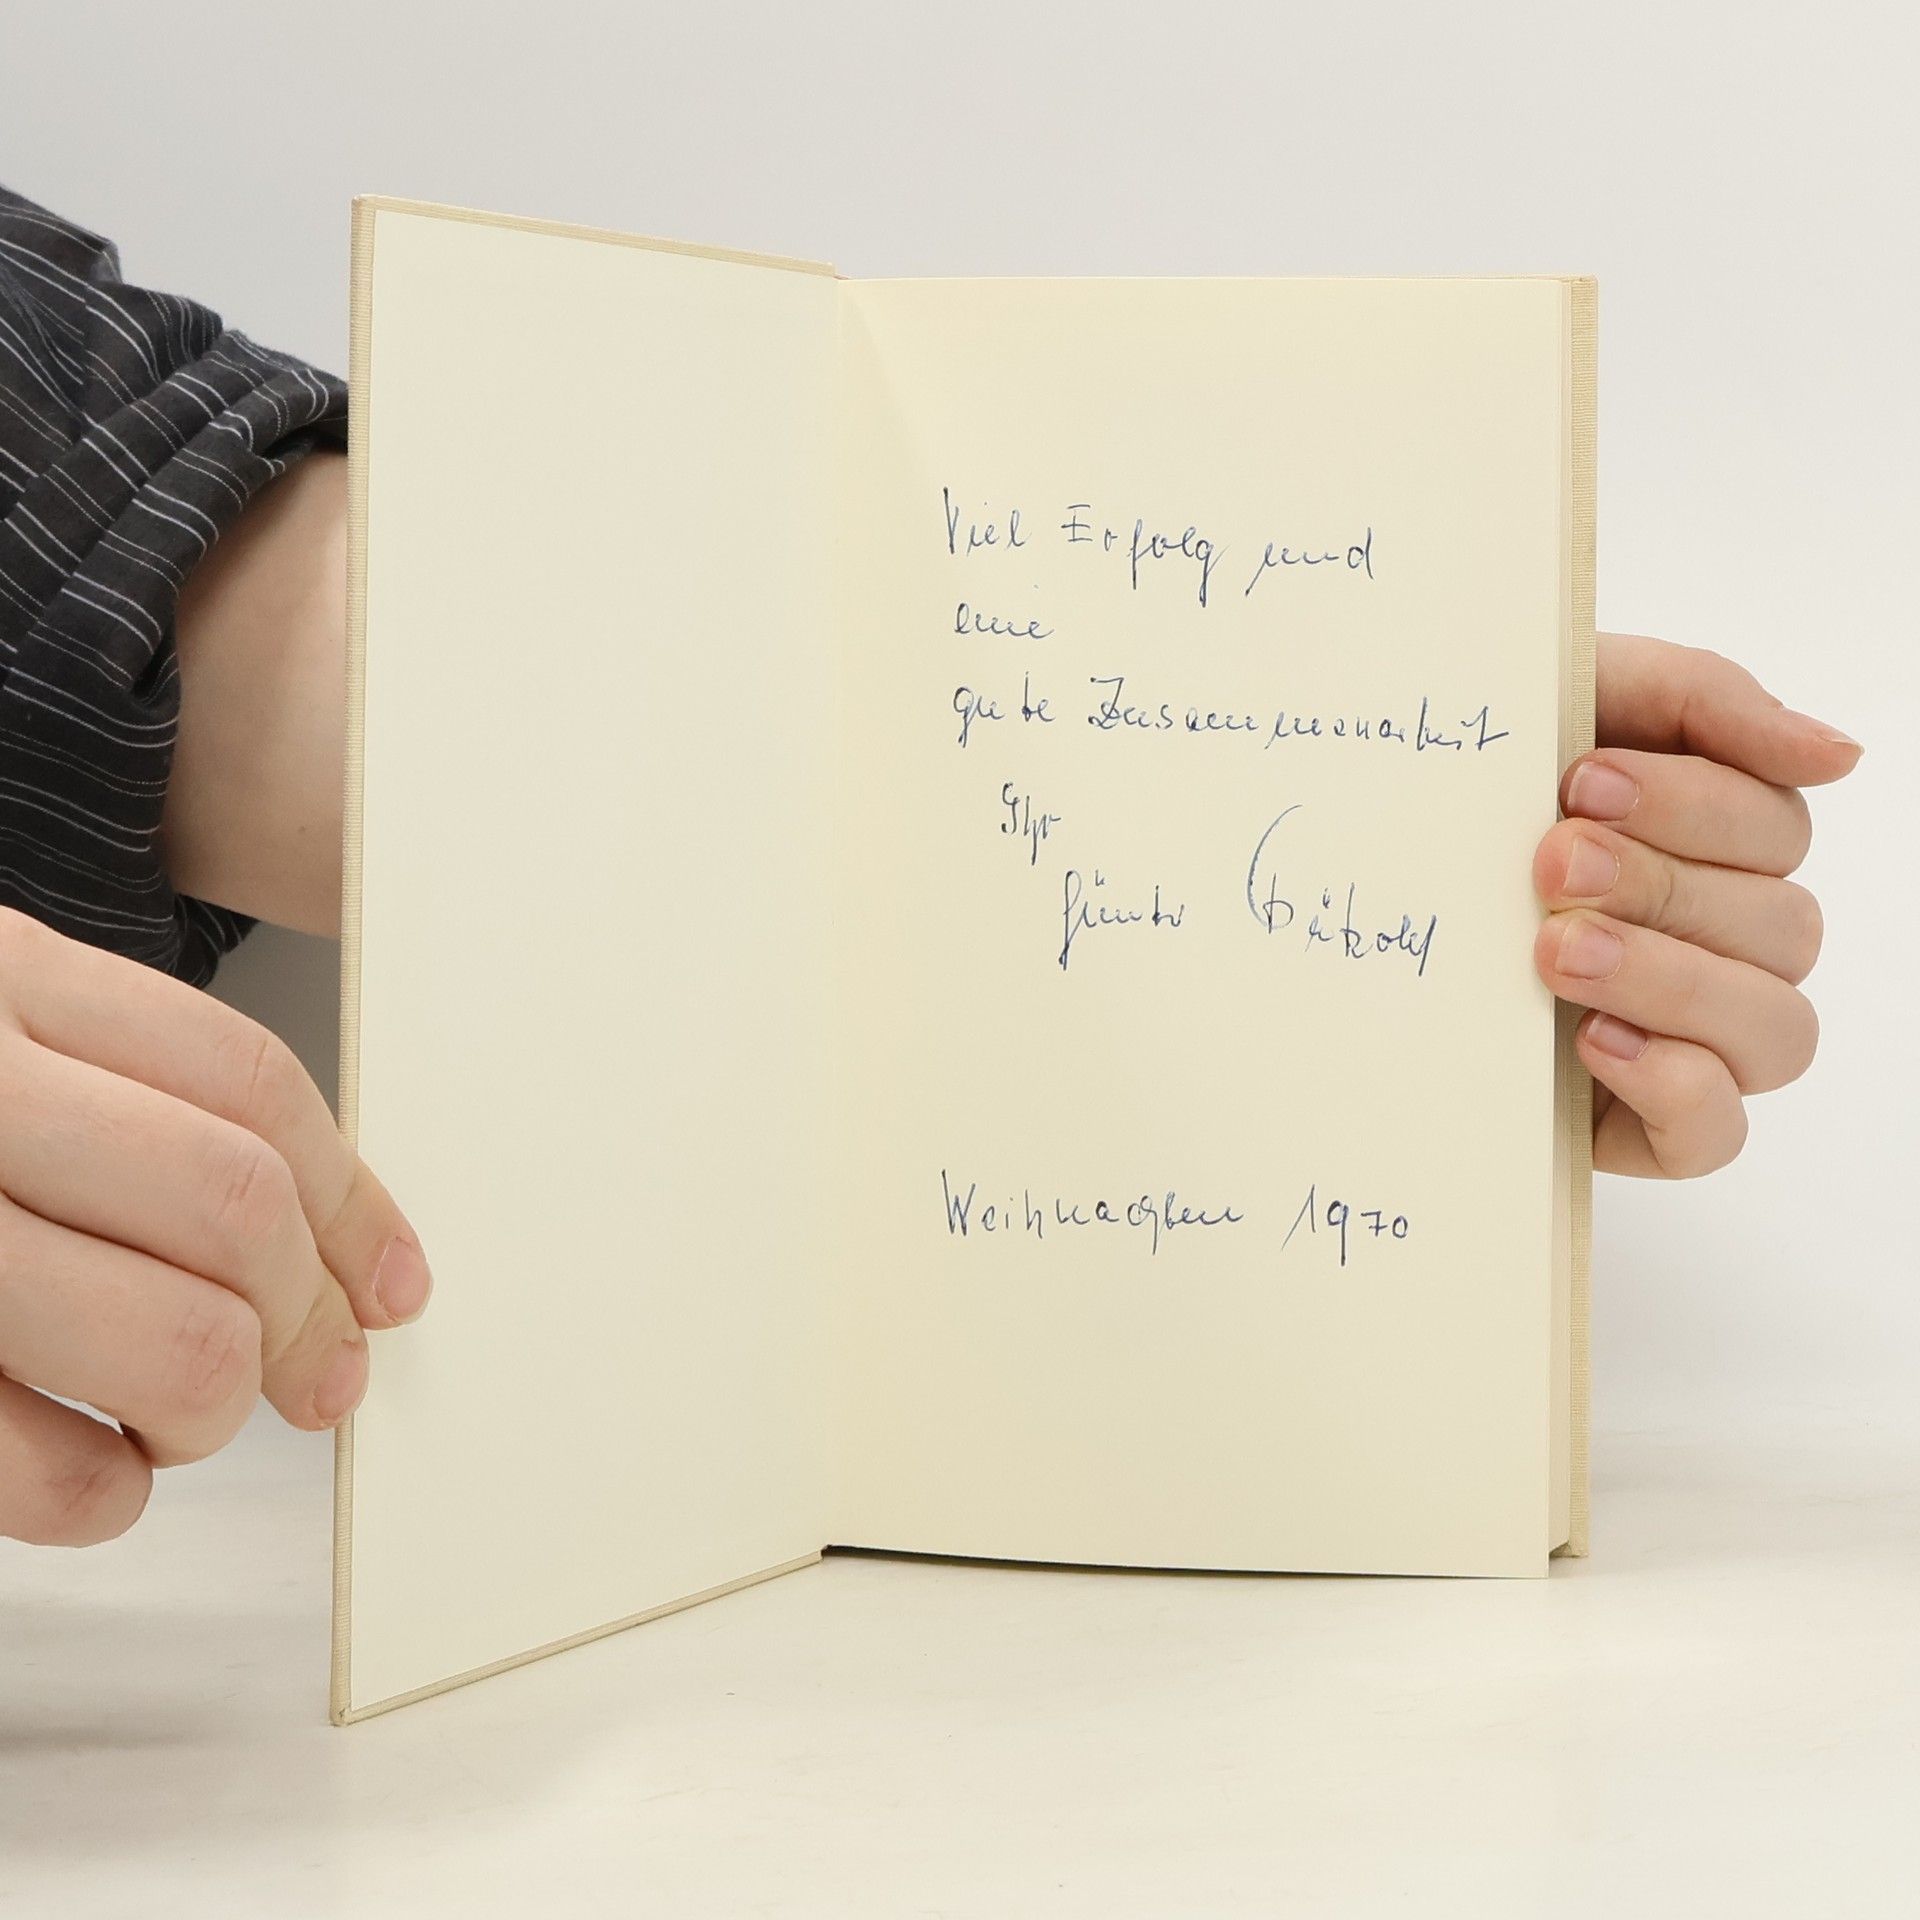 Viel Erfolg und
eine
gute Zusammenarbeit
Ihr
Günter
Weihnachten 1970